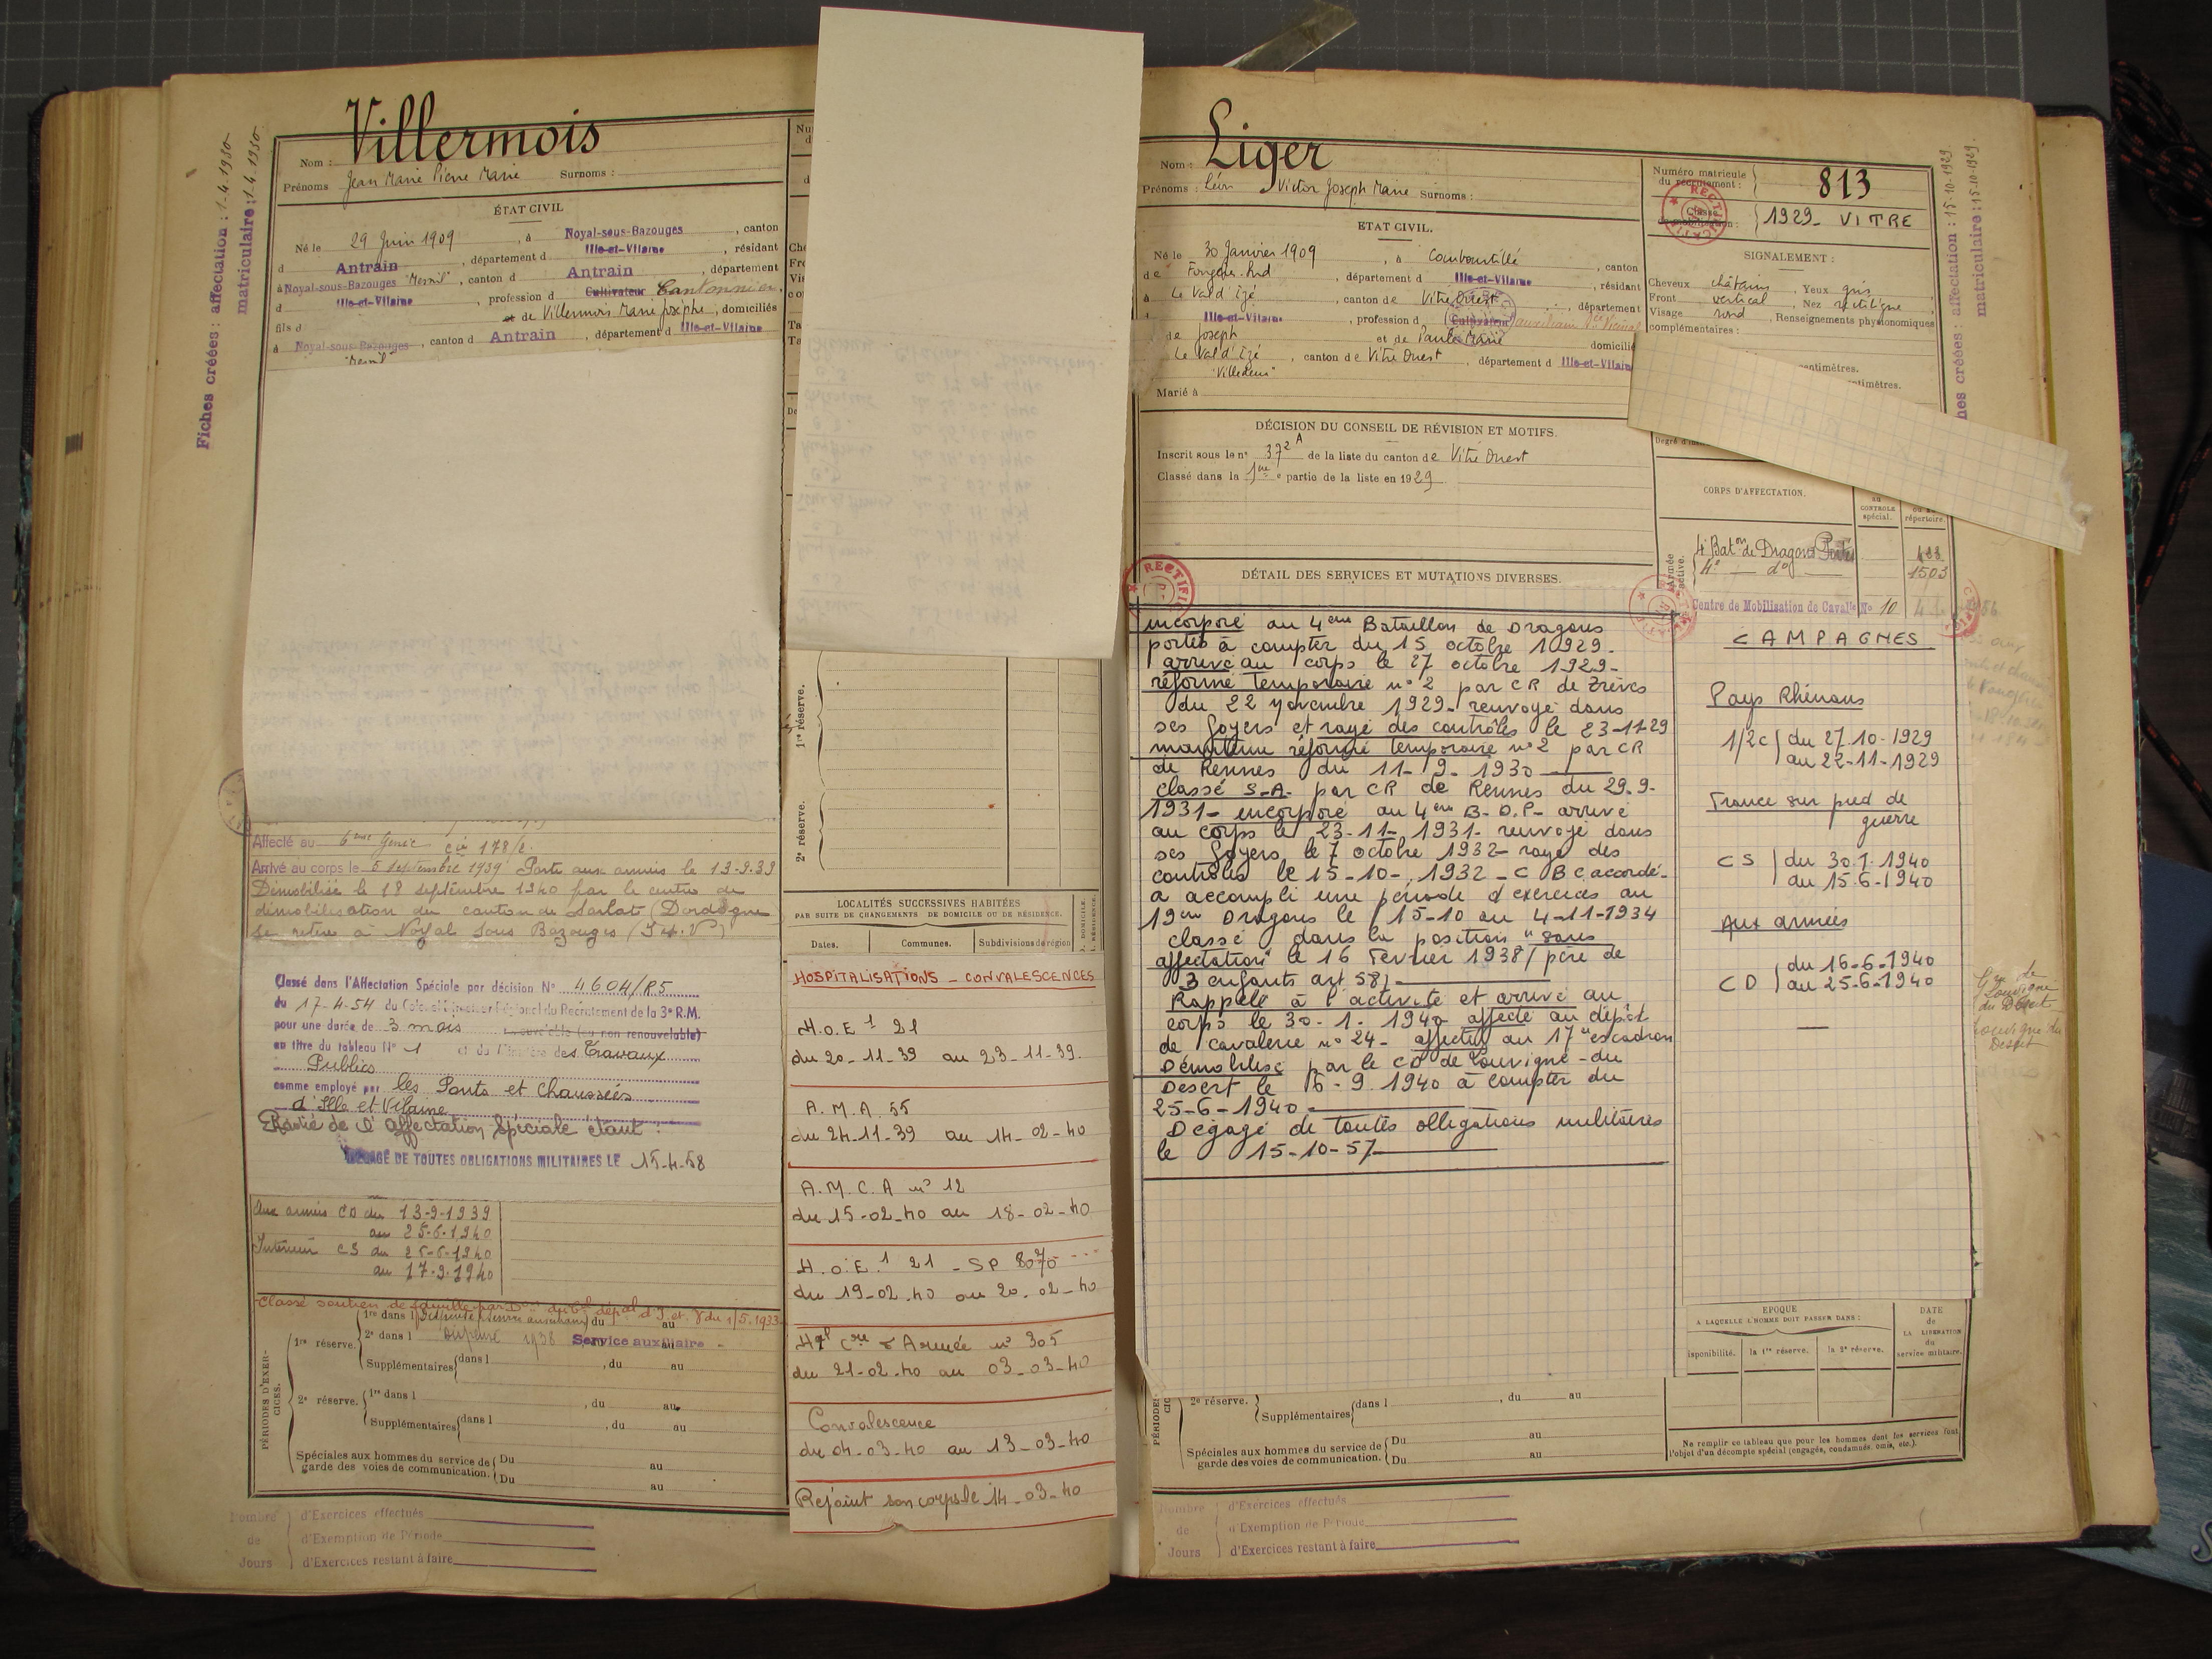 Fiches créées : affectation : 1-4-1930
matriculaire : 1-4-1930
Nom : Villermois
Prénoms Jean Marie Pierre Marie Surnoms :
ÉTAT CIVIL
Né le 29 Juin 1909, à Noyal-sous-Bazouges, canton
d Antrain, département d Ille-et-Vilaine, résidant
à Noyal-sous-Bazouges "Mesnil", canton d Antrain, département
d Ille-et-Vilaine, profession d Cultivateur Cantonnier.
fils d et de Villermois Marie Josèphe, domiciliés
à Noyal-sous-Bazouges, canton d Antrain, département d Ille-et-Vilaine
"Mesnil"
Affecté au 6ème Génie cie 178/2.
Arrivé au corps le 6 septembre 1939 Parti aux armées le 13-9-39
Démobilisé le 18 septembre 1940 par le centre de
démobilisation du canton de Sarlat (Dordogne
se retire à Noyal sous Bazouges (I et V)
Classé dans l'Affectation Spéciale par décision N° 4604/R5
du 17-4-54 du Colonel Directeur Régional du Recrutement de la 3e R.M.
pour une durée de 3 mois renouvelable (ou non renouvelable)
au titre du tableau N° 1 et du Ministère des Travaux
Publics
comme employé par les Ponts et Chaussées
d'Ille et Vilaine
Radié de l'affectation Spéciale étant :
DÉGAGÉ DE TOUTES OBLIGATIONS MILITAIRES LE 15-4-58
Aux armées CD du 13-9-1939
au 25-6-1940
Intérieur CS du 25-6-1940
au 17-9-1940
Classé soutien de famille par Don du Cel dépal d'I. et V du 1/5.1933
PÉRIODES D'EXERCICES.
1re réserve.
1re dans l Dispensé (service auxiliaire) du au
2e dans l Dispensé 1938 Service auxiliaire au
Supplémentaires dans l , du au
2e réserve.
1re dans l , du au
Supplémentaires dans l , du au
Spéciales aux hommes du service de garde des voies de communication. Du au
Du au
Nombre de Jours
d'Exercices effectués
d'Exemption de Période
d'Exercices restant à faire
1re réserve.
2e réserve.
LOCALITÉS SUCCESSIVES HABITÉES
PAR SUITE DE CHANGEMENTS DE DOMICILE OU DE RÉSIDENCE.
Dates. Communes. Subdivisions de région D. DOMICILE. R. RÉSIDENCE.
HOSPITALISATIONS - CONVALESCENCES
H.O.E 1 21
du 20-11-39 au 23-11-39.
A.M.A. 55
du 24-11-39 au 14-02-40
A.M.C.A n° 12
du 15-02-40 au 18-02-40
H.O.E. 1 21 - SP 8070
du 19-02-40 au 20-02-40
Hpl Cre d'Armée n° 305
du 21-02-40 au 03-03-40
Convalescence
du 04-03-40 au 13-03-40
Rejoint son corps le 14-03-40
Nom : Liger
Prénoms : Léon Victor Joseph Marie Surnoms :
ETAT CIVIL.
Né le 30 Janvier 1909, à Combourtillé, canton
de Fougères-Sud, département d Ille-et-Vilaine, résidant
à Le Val d'Izé, canton de Vitré Ouest, département
d Ille-et-Vilaine, profession d (Cultivateur) auxiliaire
de Joseph et de Paule Marie domiciliés
Le Val d'Izé, canton de Vitré Ouest, département d Ille-et-Vilaine
Marié à
Numéro matricule du recrutement : 813
Classe de mobilisation : 1929 - VITRE
RECTIFIC
SIGNALEMENT :
Cheveux châtains, Yeux gris
Front vertical, Nez rectiligne
Visage rond, Renseignements physionomiques
complémentaires :
centimètres.
centimètres.
DÉCISION DU CONSEIL DE RÉVISION ET MOTIFS.
Inscrit sous le n° 372 A de la liste du canton de Vitré Ouest
Classé dans la 1ère partie de la liste en 1929
CORPS D'AFFECTATION.
au CONTROLE spécial.
ou au répertoire.
Armée active.
4e Baton de Dragons Portés 488
4e - do - 1503
Centre de Mobilisation de Cavalie No 10
DÉTAIL DES SERVICES ET MUTATIONS DIVERSES.
incorporé au 4ème Bataillon de Dragons
portés à compter du 15 octobre 1929.
arrivé au corps le 27 octobre 1929-
réformé temporaire n°2 par CR de Trèves
du 22 novembre 1929- renvoyé dans
ses foyers et rayé des contrôles le 23-11-29
maintenu réformé temporaire n°2 par CR
de Rennes du 11-9-1930
classé S-A- par CR de Rennes du 29.9-
1931- incorporé au 4ème B-D.P- arrivé
au corps le 23-11-1931- renvoyé dans
ses foyers le 7 octobre 1932- rayé des
contrôles le 15-10-1932 - C B C accordé-
a accompli une période d'exercices au
19ème Dragons le 15-10 au 4-11-1934
classé dans la position "sans
affectation" le 16 Février 1938 (père de
3 enfants art 58)
Rappelé à l'activité et arrivé au
corps le 30-1-1940 affecté au dépôt
de cavalerie n° 24- affecté au 17e escadron
Démobilisé par le CD de Louvigné-du
Désert le 16-9-1940 à compter du
25-6-1940
Dégagé de toutes obligations militaires
le 15-10-57
CAMPAGNES
Pays Rhénans
1/2c du 27.10-1929
au 22-11-1929
France sur pied de
guerre
CS du 30.1.1940
au 15.6-1940
Aux armées
CD du 16-6-1940
au 25-6-1940
Louvigné
du Désert
Louvigné du
Désert
matriculaire : 15-10-1929.
Fiches créées : affectation : 15-10-1929
EPOQUE
A LAQUELLE L'HOMME DOIT PASSER DANS :
disponibilité. la 1re réserve. la 2e réserve.
DATE de LA LIBÉRATION du service militaire.
Ne remplir ce tableau que pour les hommes dont les services font
l'objet d'un décompte spécial (engagés, condamnés, omis, etc.).
2e réserve. Supplémentaires dans l , du au
Spéciales aux hommes du service de garde des voies de communication. Du au
Du au
Nombre de Jours
d'Exercices effectués
d'Exemption de Période
d'Exercices restant à faire